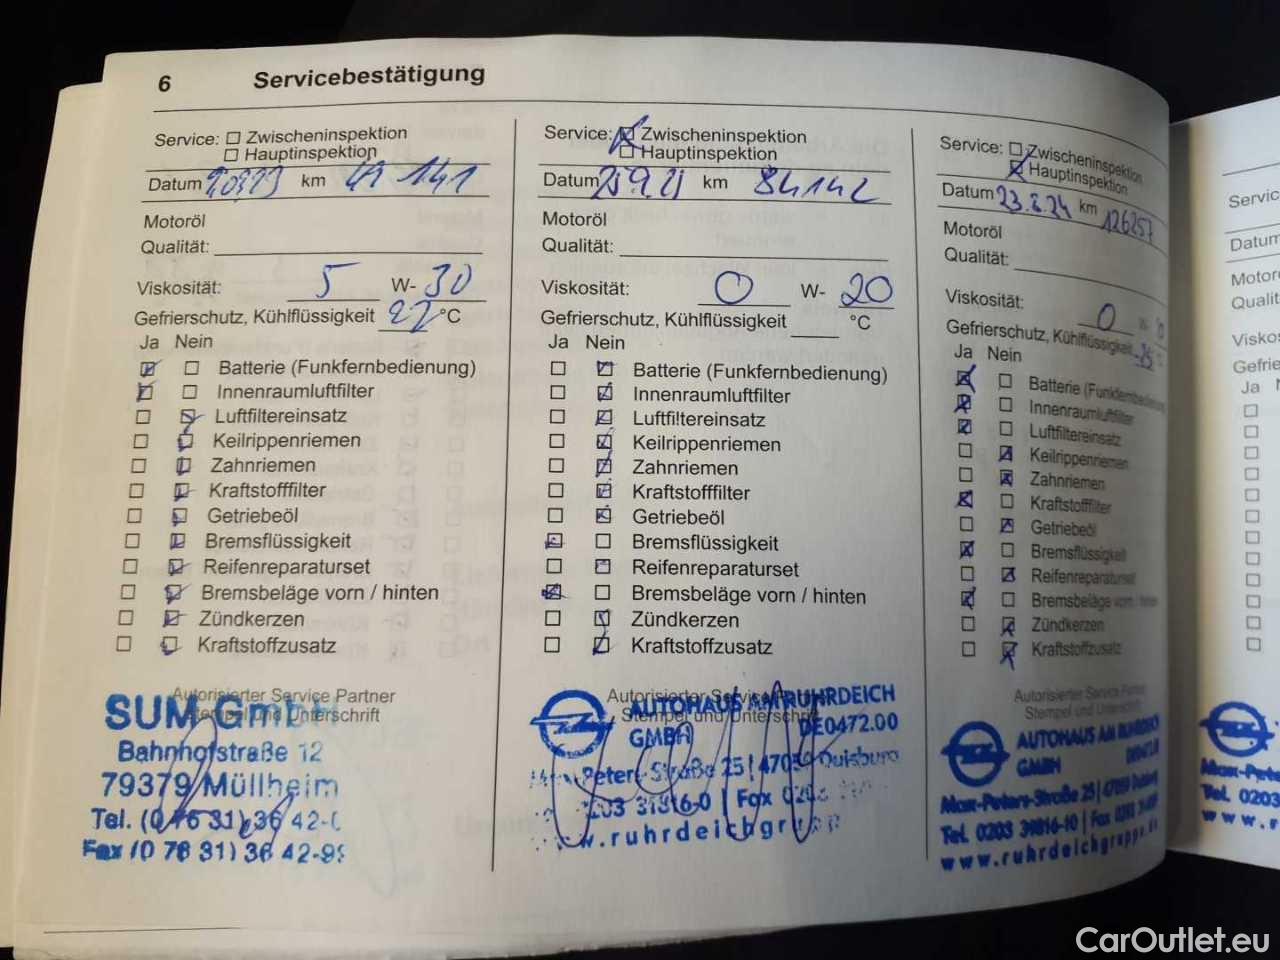 6 Servicebestätigung
Service: Zwischeninspektion
Hauptinspektion
Datum km 49 141
Motoröl
Qualität:
Viskosität: 5 W- 30
Gefrierschutz, Kühlflüssigkeit °C
Ja Nein
Batterie (Funkfernbedienung)
Innenraumluftfilter
Luftfiltereinsatz
Keilrippenriemen
Zahnriemen
Kraftstofffilter
Getriebeöl
Bremsflüssigkeit
Reifenreparaturset
Bremsbeläge vorn / hinten
Zündkerzen
Kraftstoffzusatz
Autorisierter Service Partner
Stempel und Unterschrift
SUM GmbH
Bahnhofstraße 12
79379 Müllheim
Tel. (0 76 31) 36 42-0
Fax (0 76 31) 36 42-99
Service: Zwischeninspektion
Hauptinspektion
Datum km 84142
Motoröl
Qualität:
Viskosität: 0 W- 20
Gefrierschutz, Kühlflüssigkeit °C
Ja Nein
Batterie (Funkfernbedienung)
Innenraumluftfilter
Luftfiltereinsatz
Keilrippenriemen
Zahnriemen
Kraftstofffilter
Getriebeöl
Bremsflüssigkeit
Reifenreparaturset
Bremsbeläge vorn / hinten
Zündkerzen
Kraftstoffzusatz
Autorisierter Service Partner
Stempel und Unterschrift
AUTOHAUS AM RUHRDEICH
GMBH DE0472.00
Peters-Straße 25 | 47059 Duisburg
0203 39816-0 | Fax
w.ruhrdeichgr
Service: Zwischeninspektion
Hauptinspektion
Datum 23.8.24 km 126257
Motoröl
Qualität:
Viskosität: 0 W-
Gefrierschutz, Kühlflüssigkeit -35 °C
Ja Nein
Batterie (Funkfernbedienung
Innenraumluftfilter
Luftfiltereinsatz
Keilrippenriemen
Zahnriemen
Kraftstofffilter
Getriebeöl
Bremsflüssigkeit
Reifenreparaturset
Bremsbeläge vorn / hinten
Zündkerzen
Kraftstoffzusatz
Autorisierter Service Partner
Stempel und Unterschrift
AUTOHAUS AM RUHRDEICH
GMBH
Max-Peters-Straße 25 | 47059 Duisburg
Tel. 0203 39816-10 | Fax 0203
www.ruhrdeichgruppe.de
Servic
Datum
Motorö
Qualit
Viskos
Gefrie
Ja
Max-Pete
Tel. 0203
www.r
CarOutlet.eu